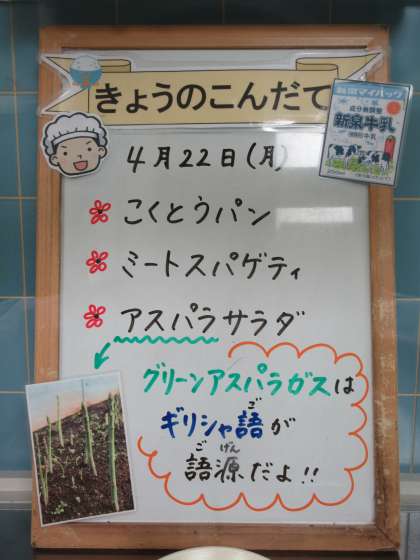 きょうのこんだて
4月22日(月)
こくとうパン
ミートスパゲティ
アスパラサラダ
グリーンアスパラガスは
ギリシャ語が
ご
語源だよ!!
ごげん
成分無調整
新泉牛乳